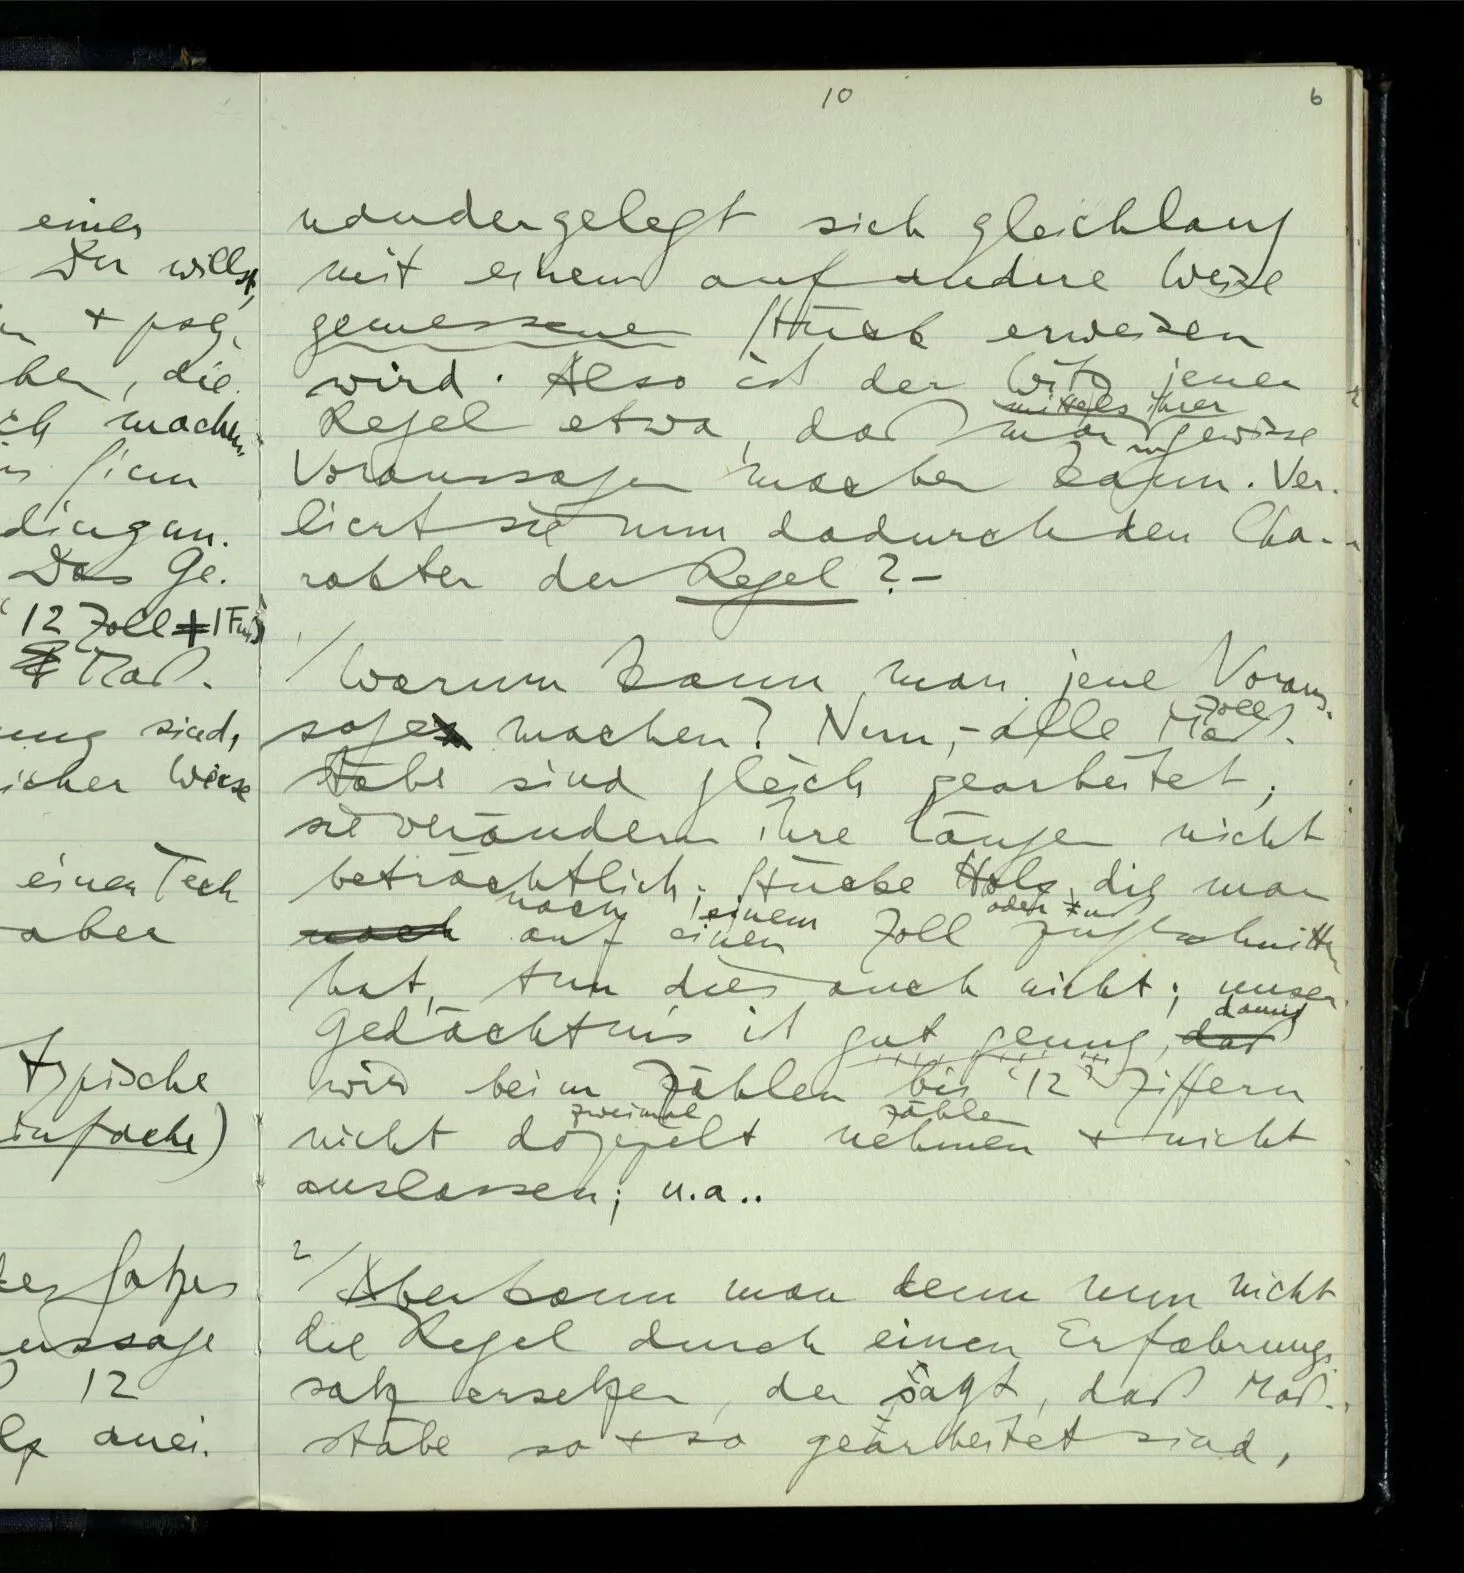 10
6
einer
Du willst,
+ pol,
ben, die
ch machen,
Sinn
dingun.
Das Ge-
12 Zoll = 1 Fuß
Maß.
ung sind,
icher Weise
einen Tech
aber
typische
einfache)
Satzes
aussage
12
lz anei-
nandergelegt sich gleichlang
mit einem auf andere Weise
gemessenen Stück erweisen
wird. Also ist der Witz jener
mittels ihrer
Regel etwa, daß man gewisse
Voraussagen machen kann. Ver-
liert sie nun dadurch den Cha-
rakter der Regel? –
1/ Warum kann man jene Voraus-
Zoll
sagen machen? Nun, – alle Maß-
stäbe sind gleich gearbeitet;
sie verändern ihre Längen nicht
beträchtlich; Stücke Holz, die man
nach einem oder zu
nach auf einen Zoll zugeschnitten
hat, tun dies auch nicht; unser
Gedächtnis ist gut genug, damit
daß
wir beim Zählen bis '12' Ziffern
zweimal zählen
nicht doppelt nehmen + nicht
auslassen; u.a..
2/ Aber kann man denn nun nicht
die Regel durch einen Erfahrungs-
satz ersetzen, der sagt, daß Maß-
stäbe so + so gearbeitet sind,